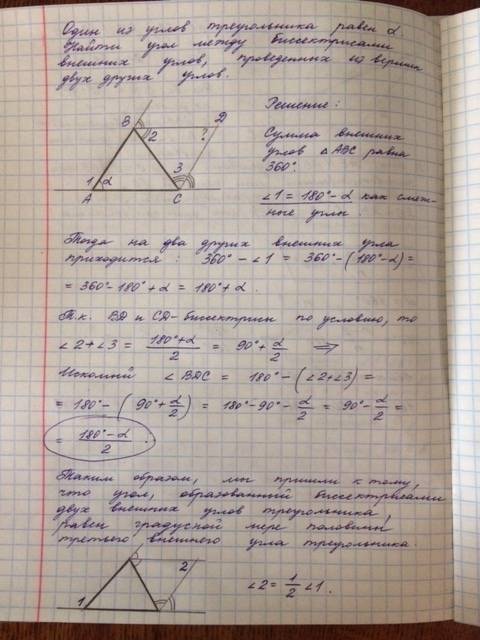 Один из углов треугольника равен α
Найти угол между биссектрисами
внешних углов, проведенных из вершин
двух других углов.
Решение:
B
D
2
?
Сумма внешних
углов △ABC равна
360°.
3
1
α
A
C
∠1 = 180° - α как смеж-
ные углы.
Тогда на два других внешних угла
приходится: 360° - ∠1 = 360° - (180° - α) =
= 360° - 180° + α = 180° + α.
Т.к. BD и CD - биссектрисы по условию, то
∠2 + ∠3 = (180° + α)/2 = 90° + α/2 ⇒
Искомый ∠BDC = 180° - (∠2 + ∠3) =
= 180° - (90° + α/2) = 180° - 90° - α/2 = 90° - α/2 =
= (180° - α)/2.
Таким образом, мы пришли к тому,
что угол, образованный биссектрисами
двух внешних углов треугольника,
равен градусной мере половины
третьего внешнего угла треугольника.
2
1
∠2 = 1/2 ∠1.